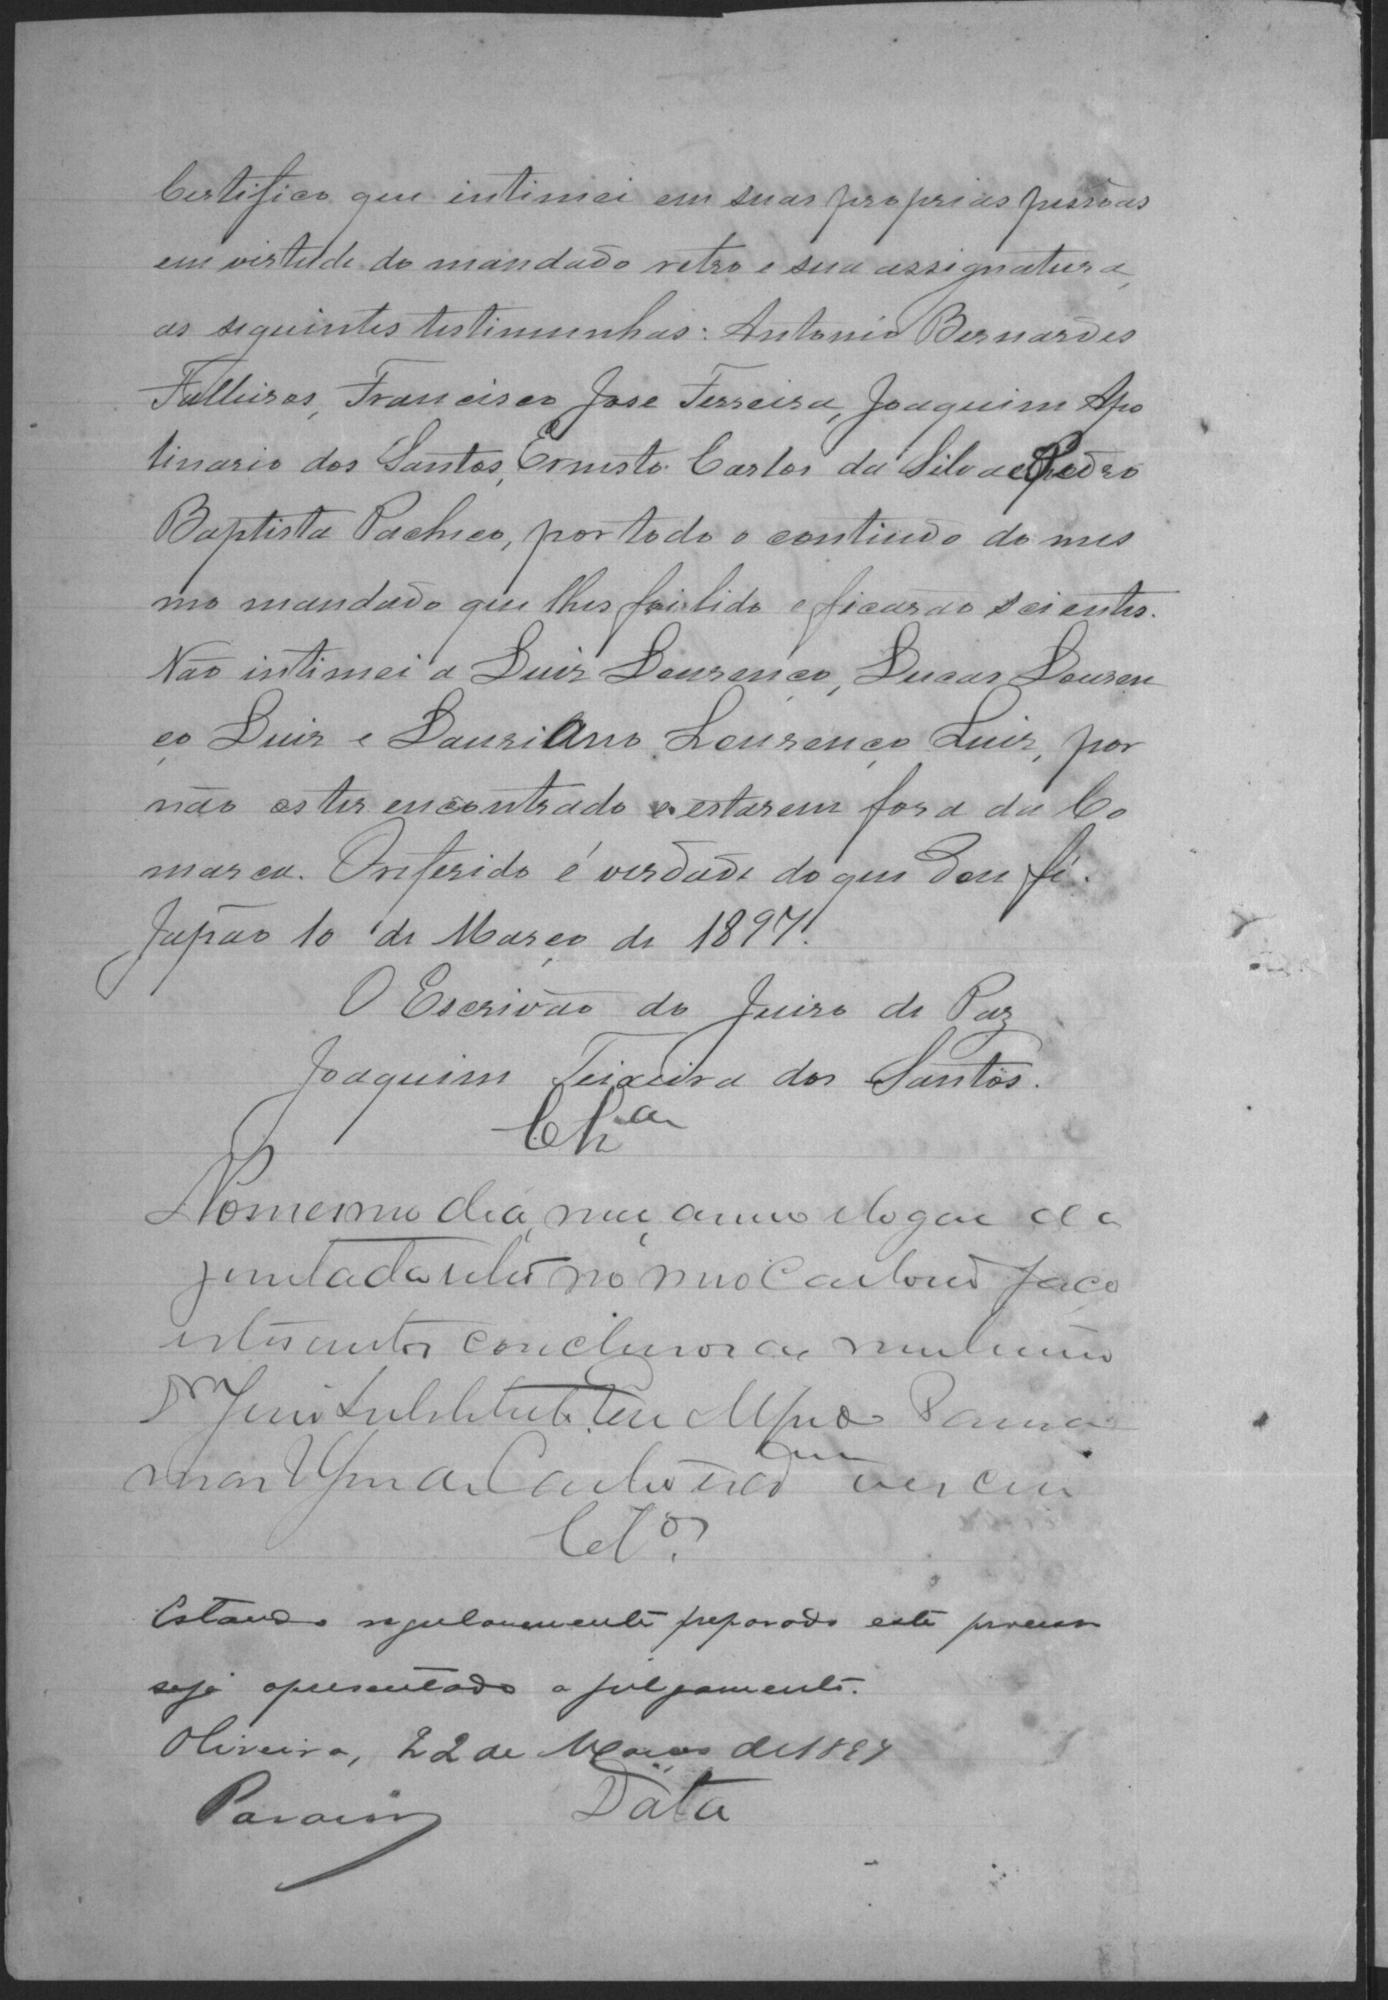 Certifico que intimei em suas proprias pessoas
em virtude do mandado retro e sua assignatura,
as seguintes testimunhas: Antonio Bernardes
Falleiros, Francisco Jose Ferreira, Joaquim Apo
linario dos Santos, Ernesto Carlos da Silva e Pedro
Baptista Pacheco, por todo o contiudo do mes
mo mandado que lhes foi lido e ficarão scientes.
Não intimei a Luiz Lourenço, Lucas Louren
ço Luiz e Lauriano Lourenço Luiz, por
não os ter encontrado e estarem fora da Co
marca. O referido é verdade do que dou fé.
Japão 10 de Março de 1897.
O Escrivão do Juizo de Paz
Joaquim Teixeira dos Santos.
Clz.am
No mesmo dia, mez, anno e logar da
juntada retro no meo Cartorio faço
estes autos conclusos ao
Dr Juiz Substituto
Clo.
Estando regularmente preparado este processo
seja apresentado a julgamento.
Oliveira, 22 de Março de 1897
Data